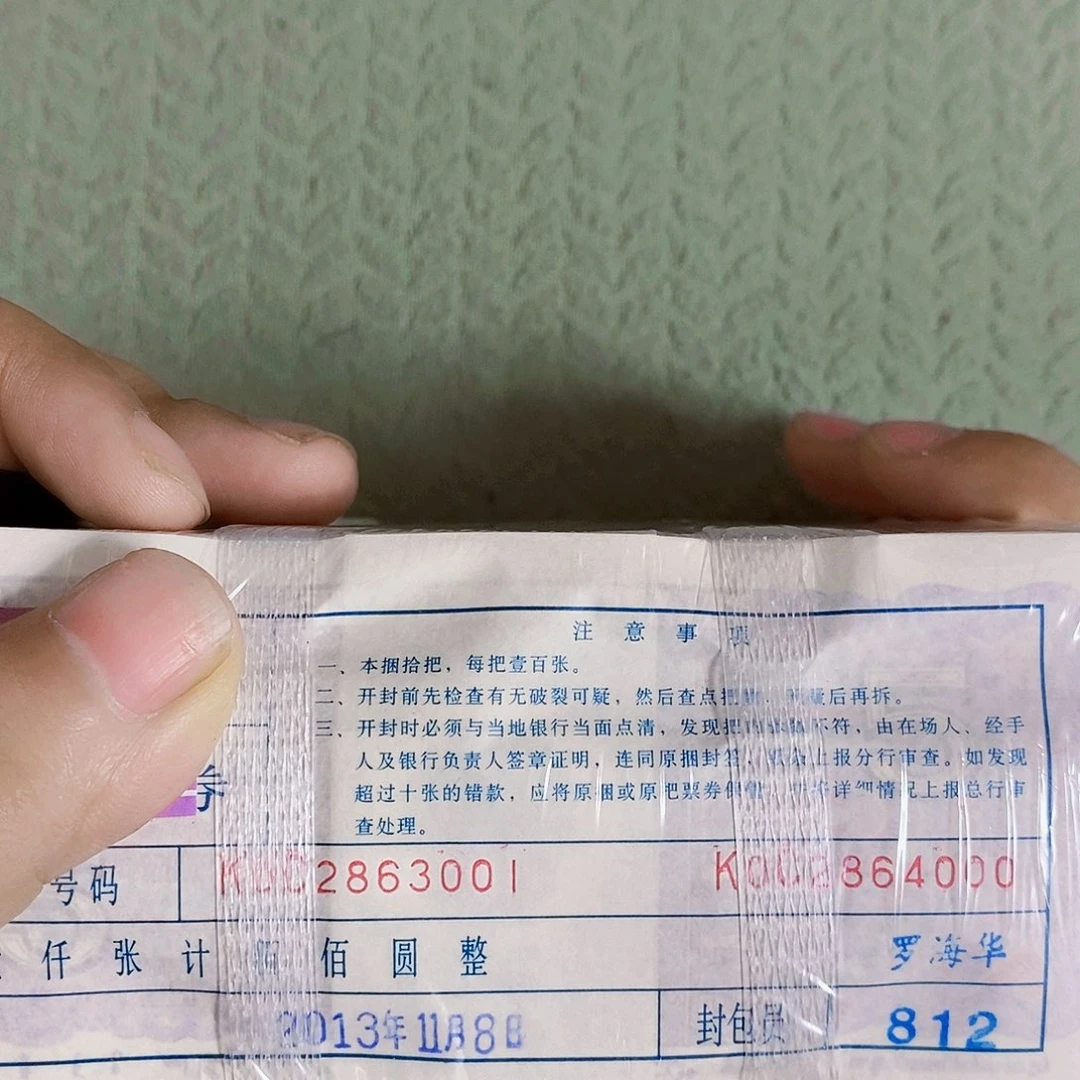 注意事项
一、本捆拾把，每把壹百张。
二、开封前先检查有无破裂可疑，然后查点把数，后再拆。
三、开封时必须与当地银行当面点清，发现把内不符，由在场人、经手
人及银行负责人签章证明，连同原捆封签，上报分行审查。如发现
超过十张的错款，应将原捆或原把票券详细情况上报总行审
查处理。
券
号码 K002863001 K002864000
仟张计 佰圆整 罗海华
2013年11月8日 封包员 812